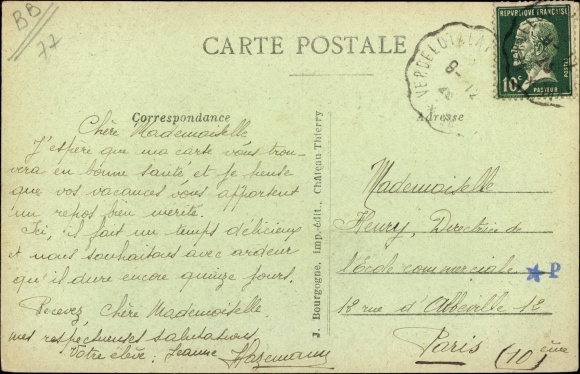 BB
77
CARTE POSTALE
REPUBLIQUE FRANÇAISE
10c
POSTES
PASTEUR
8-12
Correspondance
Adresse
Chère Mademoiselle
J'espère que ma carte vous trou-
vera en bonne santé et je pense
que vos vacances vous apportent
un repos bien mérité.
Ici, il fait un temps délicieux
et nous souhaitons avec ardeur
qu'il dure encore quinze jours.
Recevez, Chère Mademoiselle
mes respectueuses salutations
Votre élève: Jeanne
J. Bourgogne, imp.-édit., Château Thierry
Mademoiselle
Fleury, Directrice de
l'Ecole commerciale
P
12 rue d'Abbeville 12
Paris (10) ème